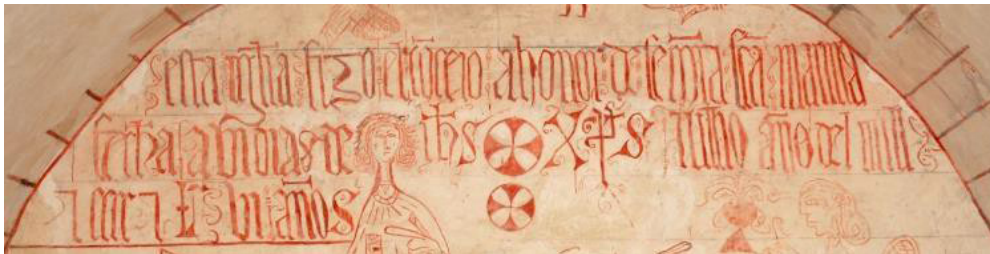 esta iglia fizo el cõceio a honor de sẽnora sc̃a maria
fecha a dias de ihs xps iulio año del mill
⁊ ccc ⁊ L vi años